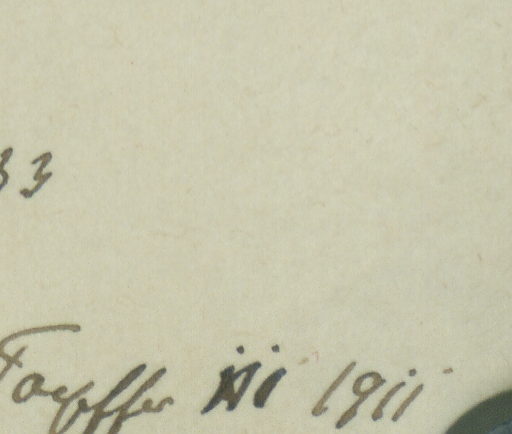 33
Toepffer III 1911